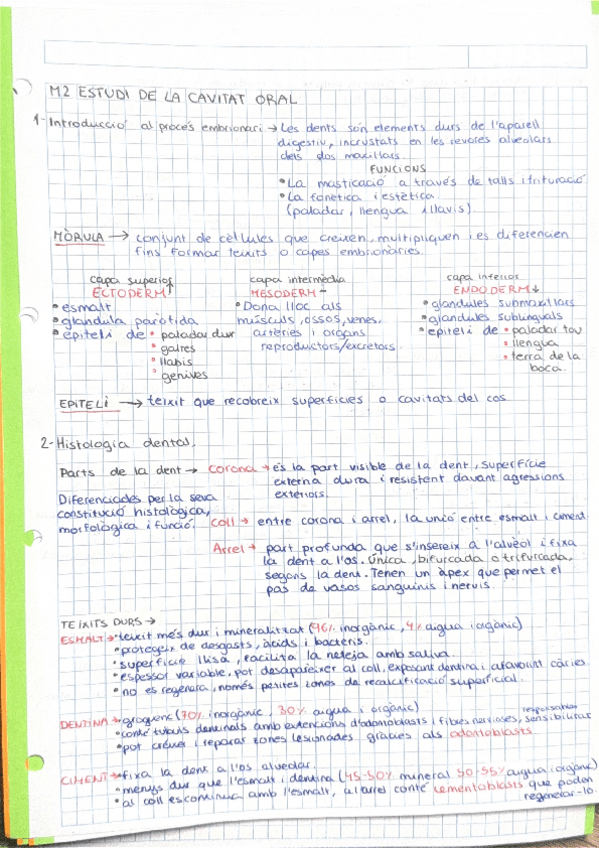 M2 ESTUDI DE LA CAVITAT ORAL
1- Introducció al procés embrionari → Les dents són elements durs de l'aparell
digestiu, incrustats en les revores alveolars
dels dos maxil·lars.
FUNCIONS
• La masticació a través de talls i trituració
• La fonètica i estètica.
(paladar, llengua i llavis).
MÒRULA → conjunt de cèl·lules que creixen, multipliquen i es diferencien
fins formar teixits o capes embrionàries.
capa superior
ECTODERM↑
• esmalt
• glandula paròtida
• epiteli de • paladar dur
• galtes
• llabis
• genives
capa intermèdia
MESODERM -
• Dona lloc als
músculs, ossos, venes,
artèries i organs
reproductors/excretors.
capa inferior
ENDODERM↓
• glandules submaxillars
• glandules sublinguals
• epiteli de • paladar tou
• llengua
• terra de la
boca.
EPITELI → teixit que recobreix superfícies o cavitats del cos
2- Histologia dental.
Parts de la dent → Corona → és la part visible de la dent, superfície
externa dura i resistent davant agressions
exteriors.
Diferenciades per la seva
constitució histològica,
morfològica i funció.
Coll → entre corona i arrel, la unió entre esmalt i ciment
Arrel → part profunda que s'insereix a l'alvèol i fixa
la dent a l'os. Única, bifurcada o trifurcada,
segons la dent. Tenen un àpex que permet el
pas de vasos sanguinis i nervis.
TEIXITS DURS →
ESMALT → • teixit més dur i mineralitzat (96% inorgànic, 4% aigua i orgànic)
• protegeix de desgasts, àcids i bacteris.
• superfície llisa, facilita la neteja amb saliva.
• espessor variable, pot desaparèixer al coll, exposant dentina i afavorint càries.
• no es regenera, només petites zones de recalcificació superficial.
DENTINA → • groguenc (70% inorgànic, 30% aigua i orgànic) responsables
• conté túbuls dentinals amb extencions d'odontoblasts i fibres nervioses, sensibilitat
• pot créixer i reparar zones lesionades gràcies als odontoblasts
CIMENT → • fixa la dent a l'os alveolar.
• menys dur que l'esmalt i dentina (45-50% mineral 50-55% aigua i orgànic)
• al coll es continua amb l'esmalt, a l'arrel conté cementoblasts que poden
regenerar-lo.